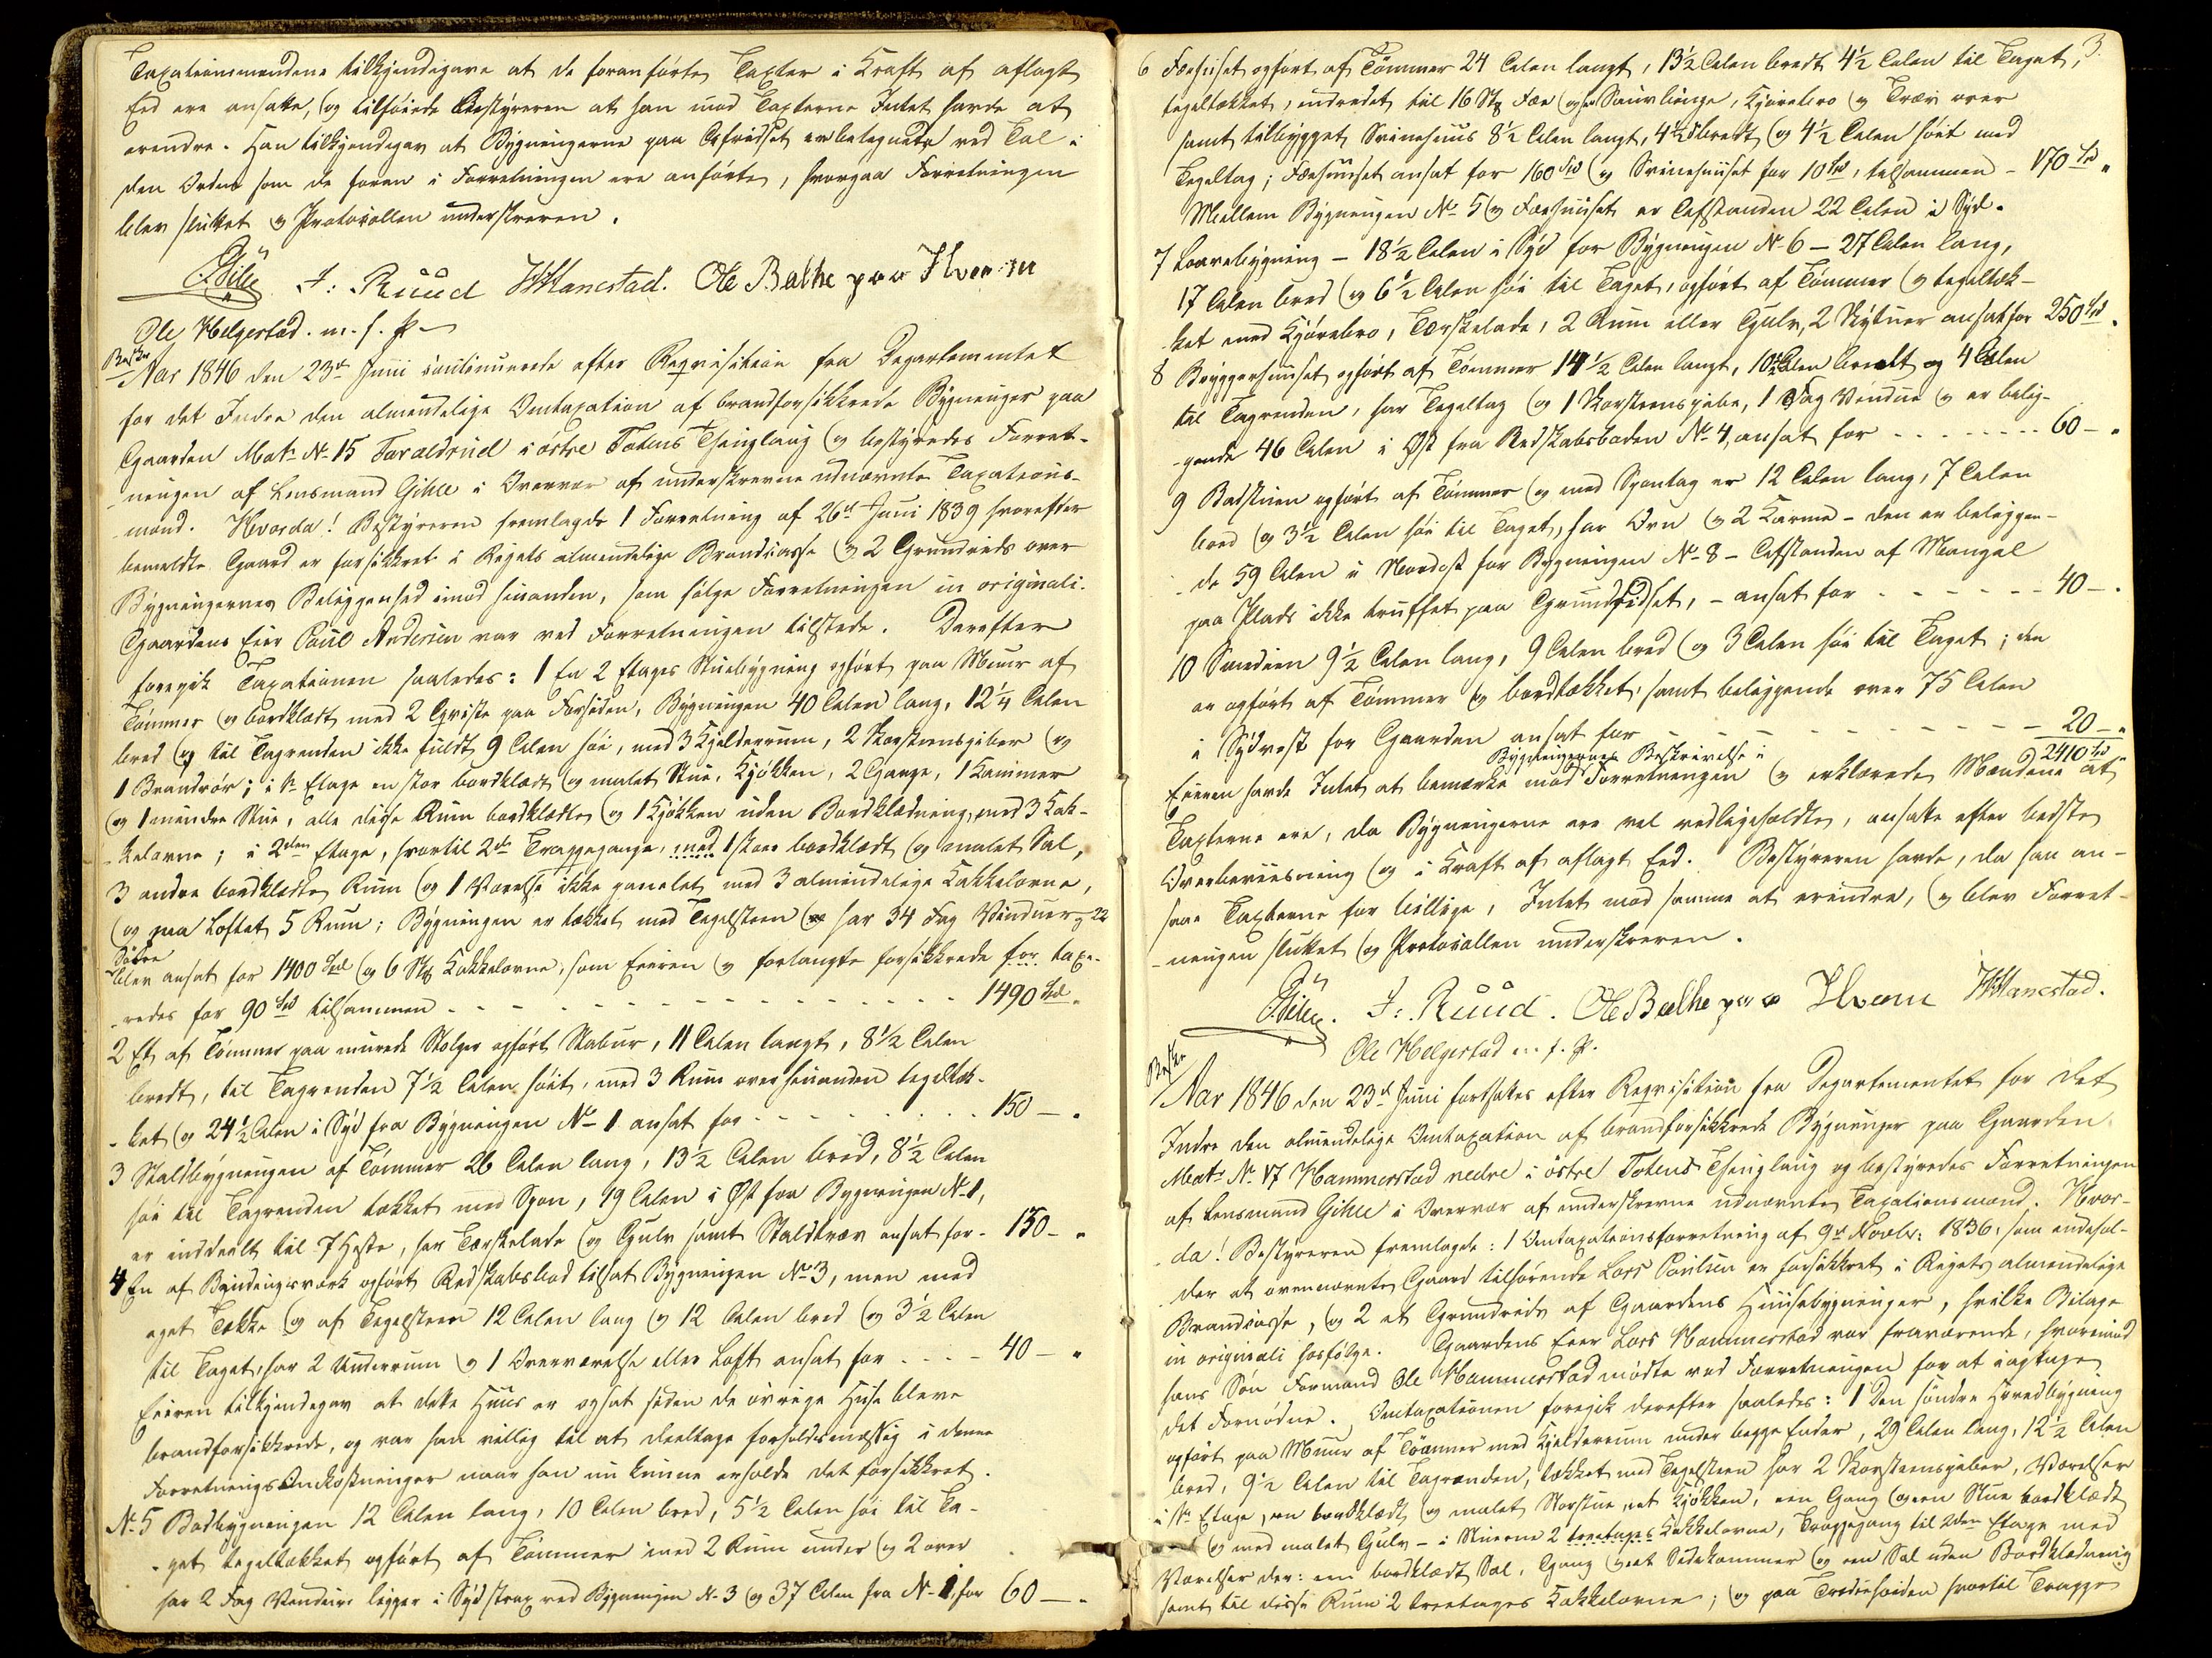 Taxationsmændene tilkjendegave at de foranførte Taxter i Kraft af aflagt
Eed ere ansatte, og tilføiede Bestyreren at han mod Taxterne Intet havde at
erendre. Han tilkjendegav at Bygningerne paa Afridset er betegnede ved Tal i
den Orden som de foran i Forretningen ere anførte, hvorpaa Forretningen
blev sluttet og Protocollen underskreven.
Gihle J: Ruud Hanestad. Ole Bælhe paa Hveem
Ole Helgestad. m. f. P.
Aar 1846 den 23de Juni continuerede efter Reqvisition fra Departementet
for det Indre den almindelige Omtaxation af brandforsikkrede Bygninger paa
Gaarden Matr No 15 Faraldrud i østre Totens Thinglaug og bestyredes Forret-
ningen af Lensmand Gihle i Overvær af underskrevne udnævnte Taxations-
mænd. Hvorda! Bestyreren fremlagde 1 Forretning af 26de Juni 1839 hvorefter
bemeldte Gaard er forsikkret i Rigets almindelige Brandcasse og 2 Grundrids over
Bygningernes Beliggenhed imod hinanden, som følge Forretningen in originali.
Gaardens Eier Poul Andersen var ved Forretningen tilstede. Derefter
foregik Taxationen saaledes: 1 En 2 Etages Stuebygning opført paa Muur af
Tømmer og bordklædt med 2 Qviste paa Forsiden, Bygningen 40 Alen lang, 12 1/4 Alen
bred og til Tagrenden ikke fuldt 9 Alen høi, med 3 Kjelderrum, 2 Skorsteenspiber og
1 Brandrør; i 1ste Etage en stor bordklædt og malet Stue, Kjøkken, 2 Gange, 1 Kammer
og 1 mindre Stue, alle disse Rum bordklædte og 1 Kjøkken uden Bordklædning, med 3 Kak-
kelovne; i 2den Etage, hvortil 2de Trappegange, med 1 stor bordklædt og malet Sal,
3 andre bordklædte Rum og 1 Værelse ikke panelet med 3 almindelige Kakkelovne,
og paa Loftet 5 Rum; Bygningen er tækket med Tegelsteen og har 34 Fag Vinduer og 22
Døre
blev ansat for 1400 Spd og 6 Stk Kakkelovne, som Eieren forlangte forsikkrede for taxe-
redes for 90 Spd tilsammen - - - 1490 Spd
2 Et af Tømmer paa murede Stolper opført Stabur, 11 Alen langt, 8 1/2 Alen
bredt, til Tagrenden 7 1/2 Alen høit, med 3 Rum over hinanden tegeltæk-
ket og 24 1/2 Alen i Syd fra Bygningen No 1 ansat for - - - 150 -
3 Staldbygningen af Tømmer 26 Alen lang, 13 1/2 Alen bred, 8 1/2 Alen
høi til Tagrenden tækket med Spon, 19 Alen i Øst fra Bygningen No 1,
er inddeelt til 7 Heste, har Tærskelade og Gulv samt Staldtræv ansat for - 150 -
4 En af Bindingsværk opført Redskabsbod tilsat Bygningen No 3, men med
eget Tække og af Tegelsteen 12 Alen lang og 12 Alen bred og 3 1/2 Alen
til Taget, har 2 Underrum og 1 Overværelse eller Loft ansat for - - - 40 -
Eieren tilkjendegav at dette Huus er opsat siden de øvrige Huse bleve
brandforsikkrede, og var han villig til at deeltage forholdsmæssig i denne
Forretnings Omkostninger naar han nu kunne erholde det forsikkret.
No 5 Bodbygningen 12 Alen lang, 10 Alen bred, 5 1/2 Alen høi til Ta-
get tegeltækket opført af Tømmer med 2 Rum under og 2 over
har 2 Fag Vinduer ligger i Syd strax ved Bygningen No 3 og 37 Alen fra No 1, for 60 -
3.
6 Fæhuset opført af Tømmer 24 Alen langt, 13 1/2 Alen bredt 4 1/2 Alen til Taget,
tegeltækket, indredet til 16 Stk Fæe og har Sauebinge, Kjørebro og Træv over
samt tilbygget Svinehuus 8 1/2 Alen langt, 4 1/2 bredt og 4 1/2 Alen høit med
Tegeltag; Fæehuuset ansat for 160 Spd og Svinehuuset for 10 Spd, tilsammen - 170 Spd
Mellem Bygningen No 5 og Fæehuuset er Afstanden 22 Alen i Syd.
7 Laavebygning - 18 1/2 Alen i Syd for Bygningen No 6 - 27 Alen lang,
17 Alen bred og 6 1/2 Alen høi til Taget, opført af Tømmer og tegeltæk-
ket med Kjørebro, Tærskelade, 2 Rum eller Gulv, ansat for 250 Spd
8 Bryggerhuuset opført af Tømmer 14 1/2 Alen langt, 10 1/2 Alen bredt og 4 Alen
til Tagrenden, har Tegeltag og 1 Skorsteenspibe, 1 Fag Vindue og er belig-
gende 46 Alen i Øst fra Redskabsboden No 4, ansat for - - - 60 -
9 Badstuen opført af Tømmer og med Spontag er 12 Alen lang, 7 Alen
bred og 3 1/2 Alen høi til Taget, har Ovn og 2 Karme - den er beliggen-
de 59 Alen i Nordost for Bygningen No 8 - Afstanden af Mangel
paa Plads ikke truffet paa Grundridset, - ansat for - - - 40 -
10 Smedien 9 1/2 Alen lang, 9 Alen bred og 3 Alen høi til Taget; den
er opført af Tømmer og bordtækket, samt beliggende over 75 Alen
i Sydvest for Gaarden ansat for - - - 20 -
2410 Spd
Bygningernes Beskrivelse i
Eieren havde Intet at bemærke mod Forretningen og erklærede Mændene at
Taxterne ere, da Bygningerne ere vel vedligeholdte, ansatte efter bedste
Overbeviisning og i Kraft af aflagt Eed. Bestyreren havde, da han an-
saae Taxterne for billige, Intet mod samme at erindre, og blev Forret-
ningen sluttet og Protocollen underskreven.
Gihle. J: Ruud. Ole Bælhe paa Hveem Hanestad.
Ole Helgestad m. f. P.
Aar 1846 den 23de Juni fortsattes efter Reqvisition fra Departementet for det
Indre den almindelige Omtaxation af brandforsikkrede Bygninger paa Gaarden
Matr No 17 Hammerstad nedre i østre Totens Thinglaug og bestyredes Forretningen
af Lensmand Gihle i Overvær af underskrevne udnævnte Taxationsmænd. Hvor-
da! Bestyreren fremlagde: 1 Omtaxationsforretning af 9de Novbr: 1836, som indehol-
der at ovennævnte Gaard tilhørende Lars Poulsen er forsikkret i Rigets almindelige
Brandcasse, og 2 et Grundrids af Gaardens Huusebygninger, hvilke Bilage
in originali hosfølge. Gaardens Eier Lars Hammerstad var fraværende, hvorimod
hans Søn Formand Ole Hammerstad mødte ved Forretningen for at iagttage
det Fornødne. Omtaxationen foregik derefter saaledes: 1 Den søndre Hovedbygning
opført paa Muur af Tømmer med Kjelderrum under begge Ender, 29 Alen lang, 12 1/2 Alen
bred, 9 1/2 Alen til Tagrenden, tækket med Tegelsteen har 2 Skorsteenspiber, Værelser
i 1ste Etage, en bordklædt og malet Storstue, et Kjøkken, een Gang og een Stue bordklædt
og med malet Gulv - i Stuerne 2 treetages Kakkelovne, Trappegang til 2den Etage med
Værelser der: een bordklædt Sal, Gang og et Sidekammer og een Sal uden Bordklædning
samt til disse Rum 2 treetages Kakkelovne; og paa Tredieheiden hvortil Trappe